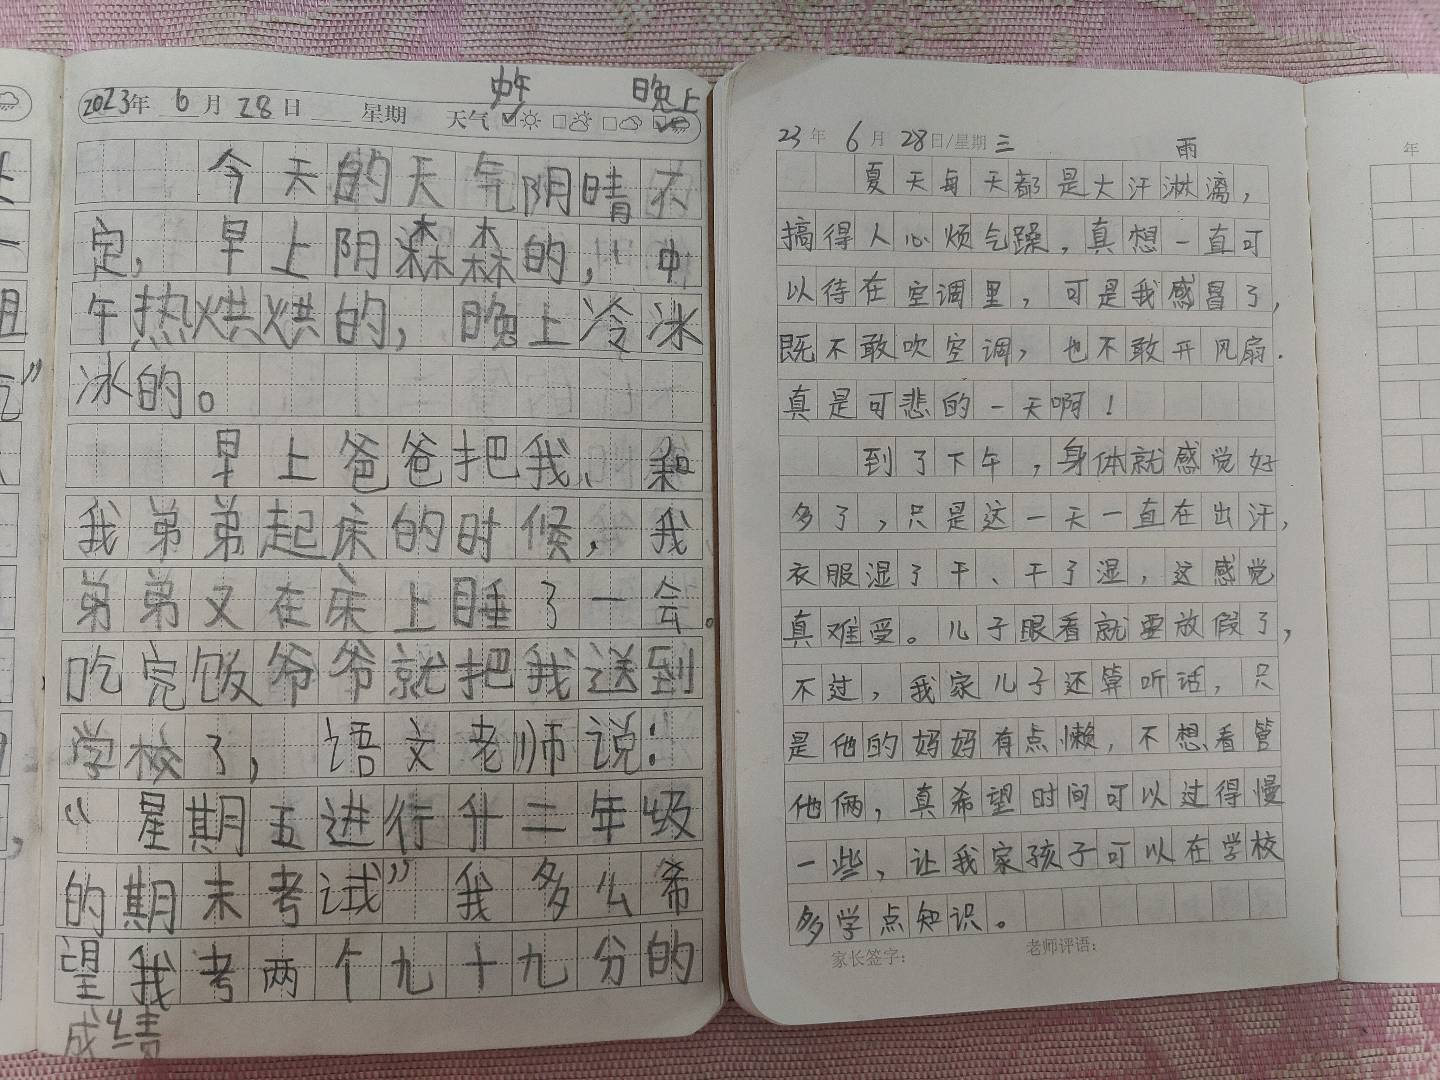 中午 晚上
2023年 6月 28日 星期 天气
今天的天气阴晴不
定，早上阴森森的，中
午热烘烘的，晚上冷冰
冰的。
早上爸爸把我、和
我弟弟起床的时候，我
弟弟又在床上睡了一会。
吃完饭爷爷就把我送到
学校了，语文老师说：
“星期五进行升二年级
的期末考试”我多么希
望我考两个九十九分的
成绩
23年 6月 28日/星期三 雨
夏天每天都是大汗淋漓，
搞得人心烦气躁，真想一直可
以待在空调里，可是我感冒了，
既不敢吹空调，也不敢开风扇.
真是可悲的一天啊！
到了下午，身体就感觉好
多了，只是这一天一直在出汗，
衣服湿了干、干了湿，这感觉
真难受。儿子眼看就要放假了，
不过，我家儿子还算听话，只
是他的妈妈有点懒，不想看管
他俩，真希望时间可以过得慢
一些，让我家孩子可以在学校
多学点知识。
家长签字： 老师评语：
年